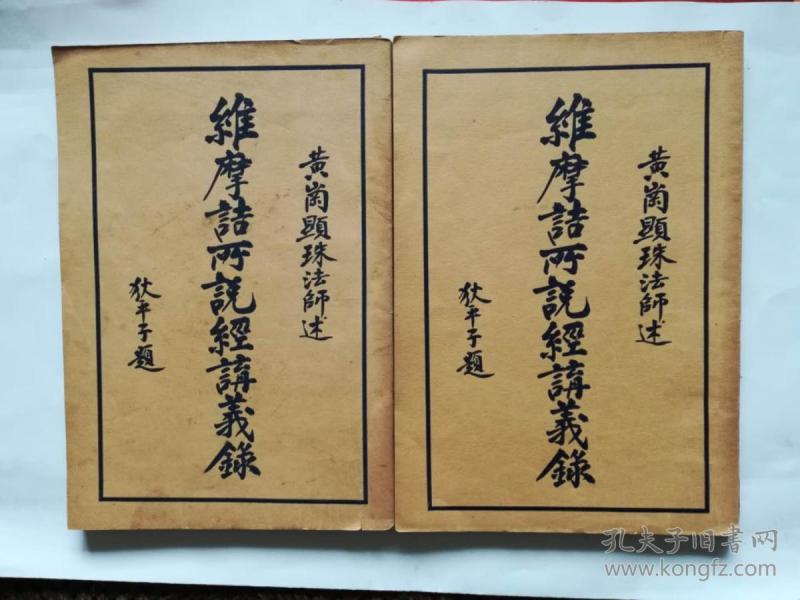 黃崗顯珠法師述
維摩詰所說經講義錄
狄平子題
黃崗顯珠法師述
維摩詰所說經講義錄
狄平子題
孔夫子旧书网
www.kongfz.com